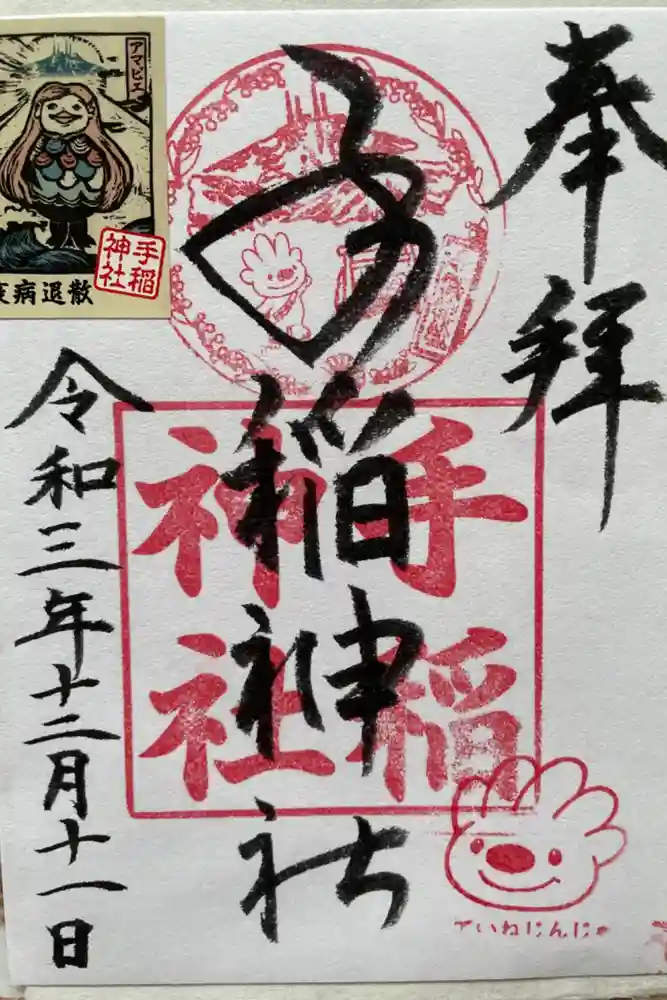 奉拝
手稲神社
手稲
神社
令和三年十二月十一日
アマビエ
疫病退散
手稲
神社
ていねじんじゃ